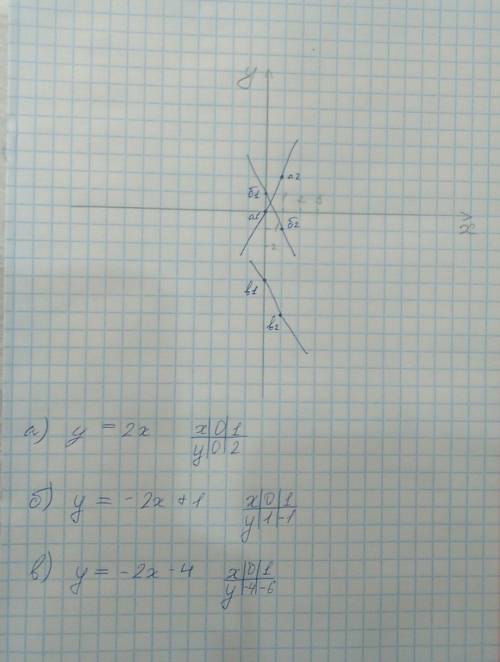 y
a2
б1
1 2 3
a1
-1
б2
x
-2
в1
в2
а) y = 2x x 0 1
y 0 2
б) y = -2x + 1 x 0 1
y 1 -1
в) y = -2x - 4 x 0 1
y -4 -6